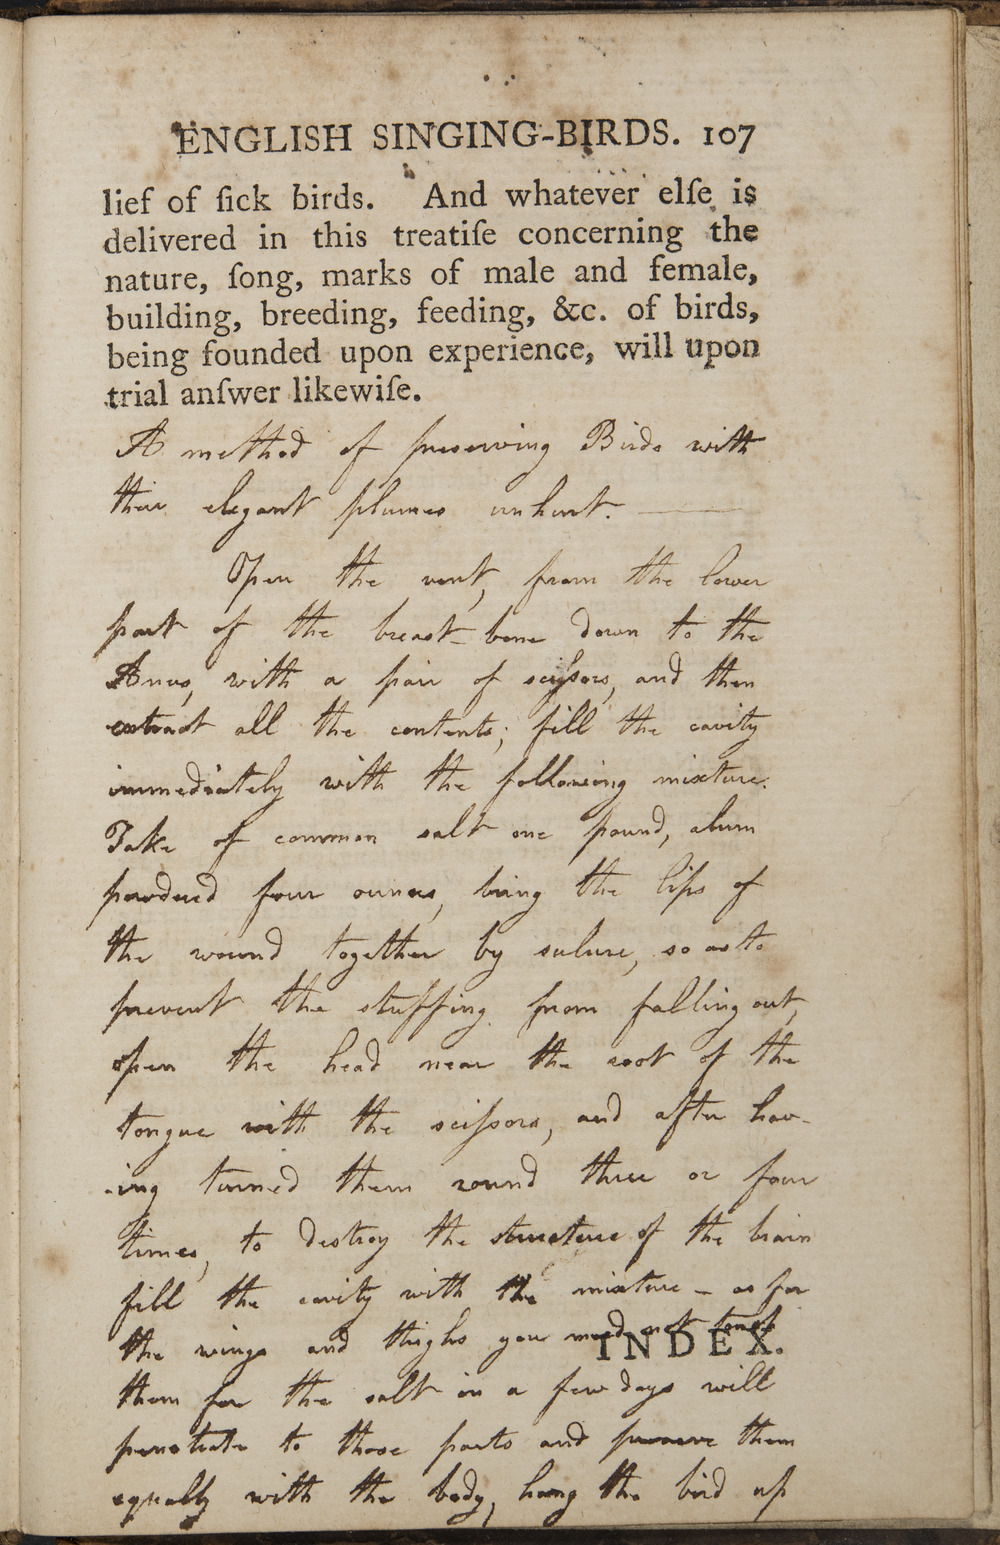 ENGLISH SINGING-BIRDS. 107
lief of ſick birds. And whatever elſe is
delivered in this treatiſe concerning the
nature, ſong, marks of male and female,
building, breeding, feeding, &c. of birds,
being founded upon experience, will upon
trial anſwer likewiſe.
A method of preserving Birds with
their elegant plumes unhurt. ——
Open the vent, from the lower
part of the breast-bone down to the
Anus, with a pair of sciſsors, and then
extract all the contents; fill the cavity
immediately with the following mixture.
Take of common salt one pound, alum
powdered four ounces, bring the lips of
the wound together by suture, so as to
prevent the stuffing from falling out,
open the head near the root of the
tongue with the sciſsors, and after hav-
-ing turned them round three or four
times, to destroy the structure of the brain
fill the cavity with the mixture – as for
the wings and thighs you need not touch
INDEX.
them for the salt in a few days will
penetrate to those parts and preserve them
equally with the body, hang the bird up